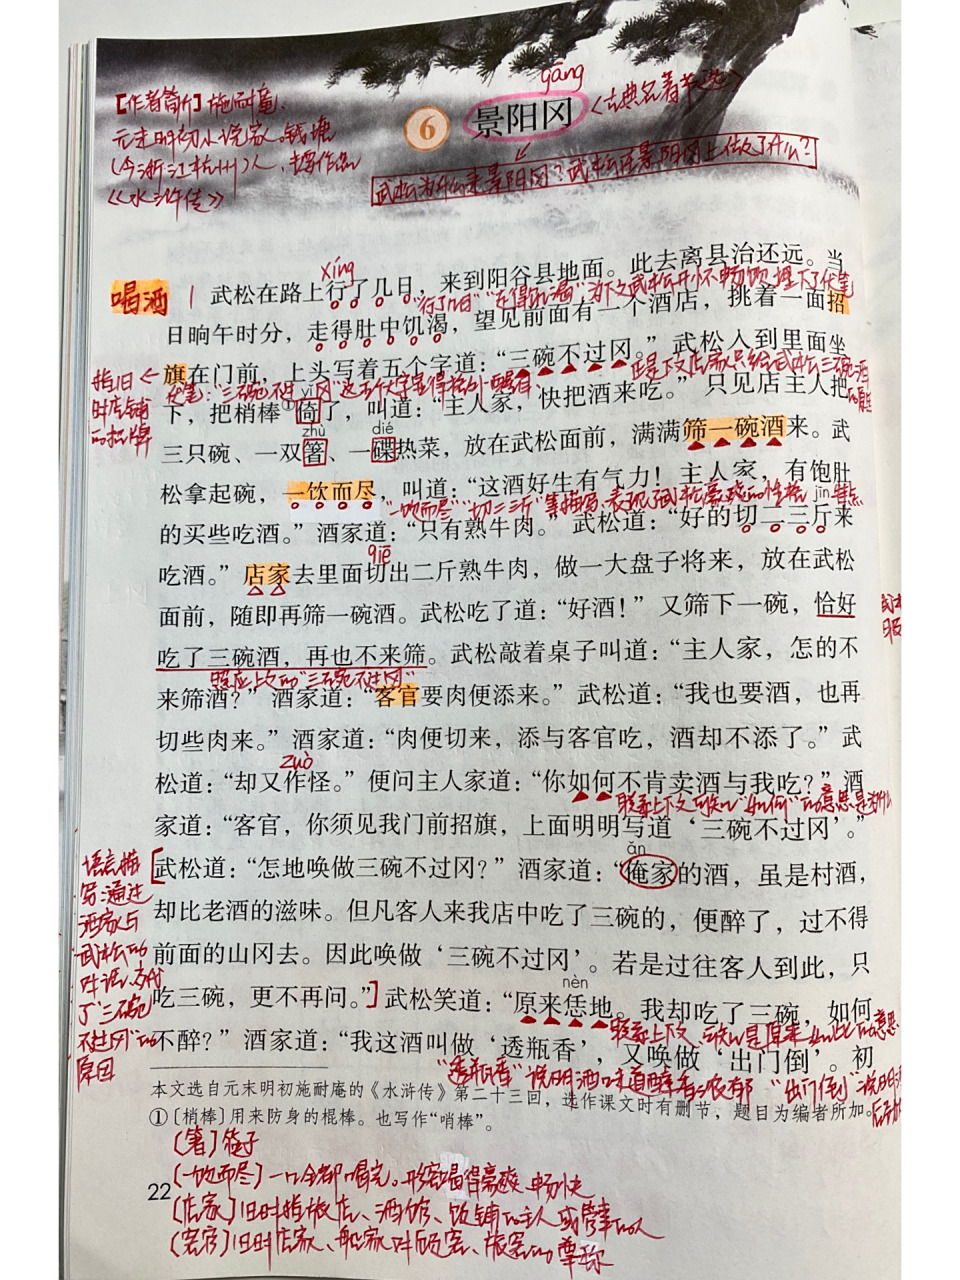 gāng
【作者简介】施耐庵
元末明初小说家。钱塘
(今浙江杭州)人,主要作品
《水浒传》
6 景阳冈
<古典名著节选>
武松为什么来景阳冈?武松在景阳冈上做了什么?
喝酒
xíng
1 武松在路上行了几日,来到阳谷县地面。此去离县治还远。当
“行了几日”“走得饥渴”为下文武松开怀畅饮埋下了伏笔
日晌午时分,走得肚中饥渴,望见前面有一个酒店,挑着一面招
旗在门前,上头写着五个字道:“三碗不过冈。” 武松入到里面坐
指旧时店铺的招牌
伏笔:“三碗不过冈”这五个大字显得格外醒目、
也是下文店家只给武松三碗酒的原因
yǐ
下,把梢棒①倚了,叫道:“主人家,快把酒来吃。” 只见店主人把
zhù dié
三只碗、一双箸、一碟热菜,放在武松面前,满满筛一碗酒来。武
松拿起碗,一饮而尽,叫道:“这酒好生有气力!主人家,有饱肚
“一饮而尽”“切二三斤”
表现了武松豪放的性格
jīn
的买些吃酒。” 酒家道:“只有熟牛肉。” 武松道:“好的切二三斤来
qiē
吃酒。” 店家去里面切出二斤熟牛肉,做一大盘子将来,放在武松
面前,随即再筛一碗酒。武松吃了道:“好酒!” 又筛下一碗,恰好
吃了三碗酒,再也不来筛。武松敲着桌子叫道:“主人家,怎的不
照应上文的“三碗不过冈”
来筛酒?” 酒家道:“客官要肉便添来。” 武松道:“我也要酒,也再
切些肉来。” 酒家道:“肉便切来,添与客官吃,酒却不添了。” 武
zuò
松道:“却又作怪。” 便问主人家道:“你如何不肯卖酒与我吃?” 酒
联系上下文可知“如何”的意思是为什么
家道:“客官,你须见我门前招旗,上面明明写道‘三碗不过冈’。”
ǎn
武松道:“怎地唤做三碗不过冈?” 酒家道:“俺家的酒,虽是村酒,
却比老酒的滋味。但凡客人来我店中吃了三碗的,便醉了,过不得
前面的山冈去。因此唤做‘三碗不过冈’。若是过往客人到此,只
nèn
吃三碗,更不再问。” 武松笑道:“原来恁地。我却吃了三碗,如何
联系上下文、可知是原来如此的意思
不醉?” 酒家道:“我这酒叫做‘透瓶香’,又唤做‘出门倒’。初
语言描写:通过
酒家与
武松的
对话,交代
了“三碗
不过冈”的
原因
“透瓶香”说明酒味道醇香浓郁 “出门倒”说明酒
本文选自元末明初施耐庵的《水浒传》第二十三回,选作课文时有删节,题目为编者所加。
①〔梢棒〕用来防身的棍棒。也写作“哨棒”。
(箸)筷子
(一饮而尽)一口全部喝完。形容喝得豪爽、畅快
(店家)旧时指饭店、酒馆、饭铺的主人或管事的人
(客官)旧时店家、船家对顾客、旅客的尊称
22